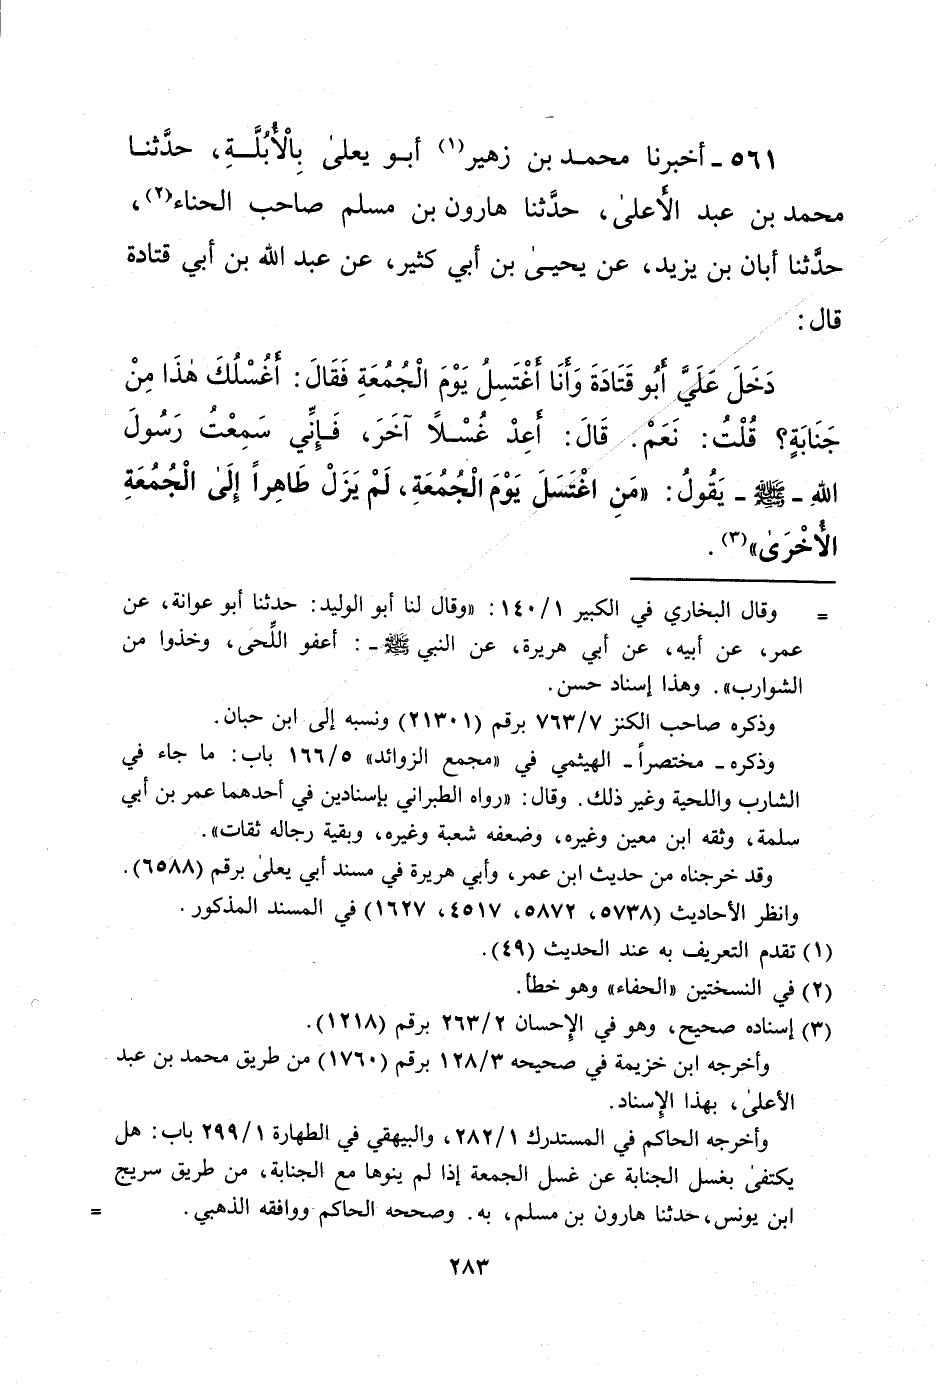 ٥٦١ - أخبرنا محمد بن زهير(١) أبو يعلىٰ بِالْأُبُلَّةِ، حدَّثنا
محمد بن عبد الأَعلىٰ، حدَّثنا هارون بن مسلم صاحب الحناء(٢)،
حدَّثنا أبان بن يزيد، عن يحيىٰ بن أبي كثير، عن عبد الله بن أبي قتادة
قال:
دَخَلَ عَلَيَّ أَبُو قَتَادَةَ وَأَنَا أَغْتَسِلُ يَوْمَ الْجُمُعَةِ فَقَالَ: أَغُسْلُكَ هٰذَا مِنْ
جَنَابَةٍ؟ قُلْتُ: نَعَمْ. قَالَ: أَعِدْ غُسْلاً آخَرَ، فَإِنِّي سَمِعْتُ رَسُولَ
اللهِ - ﷺ - يَقُولُ: «مَنِ اغْتَسَلَ يَوْمَ الْجُمُعَةِ، لَمْ يَزَلْ طَاهِراً إِلَىٰ الْجُمُعَةِ
الْأُخْرَىٰ»(٣).
= وقال البخاري في الكبير ١/١٤٠: «وقال لنا أبو الوليد: حدثنا أبو عوانة، عن
عمر، عن أبيه، عن أبي هريرة، عن النبي ﷺ -: أعفو اللِّحى، وخذوا من
الشوارب». وهذا إسناد حسن.
وذكره صاحب الكنز ٧/٧٦٣ برقم (٢١٣٠١) ونسبه إلى ابن حبان.
وذكره - مختصراً - الهيثمي في «مجمع الزوائد» ٥/١٦٦ باب: ما جاء في
الشارب واللحية وغير ذلك. وقال: «رواه الطبراني بإسنادين في أحدهما عمر بن أبي
سلمة، وثقه ابن معين وغيره، وضعفه شعبة وغيره، وبقية رجاله ثقات».
وقد خرجناه من حديث ابن عمر، وأبي هريرة في مسند أبي يعلىٰ برقم (٦٥٨٨).
وانظر الأحاديث (٥٧٣٨، ٥٨٧٢، ٤٥١٧، ١٦٢٧) في المسند المذكور.
(١) تقدم التعريف به عند الحديث (٤٩).
(٢) في النسختين «الحفاء» وهو خطأ.
(٣) إسناده صحيح، وهو في الإِحسان ٢/٢٦٣ برقم (١٢١٨).
وأخرجه ابن خزيمة في صحيحه ٣/١٢٨ برقم (١٧٦٠) من طريق محمد بن عبد
الأعلىٰ، بهذا الإِسناد.
وأخرجه الحاكم في المستدرك ١/٢٨٢، والبيهقي في الطهارة ١/٢٩٩ باب: هل
يكتفىٰ بغسل الجنابة عن غسل الجمعة إذا لم ينوها مع الجنابة، من طريق سريج
ابن يونس، حدثنا هارون بن مسلم، به. وصححه الحاكم ووافقه الذهبي. =
٢٨٣